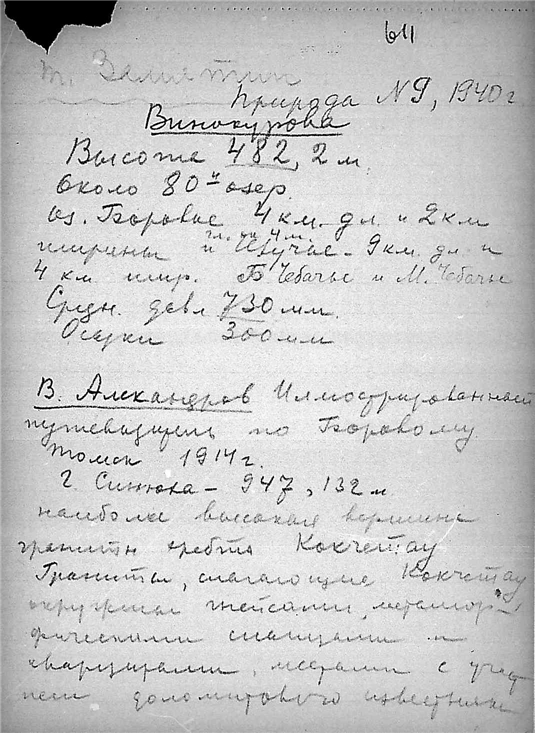 611
т. Замятин
Природа N 9, 1940 г
Винокурова
Высота 482,2 м.
Около 80 и озер.
оз. Боровое 4 км. дл. и 2 км
ширины и Щучье - 9 км. дл. и
гл. 4 м.
4 км шир. Б Чебачье и М. Чебачье
Средн. давл 730 мм.
Осадки 300 мм
В. Александров Иллюстрированный
путеводитель по Боровому
Томск 1914 г.
Г Синюха - 947,132 м
наиболее высокая вершина
гранитн хребта Кокчетау
Граниты, слагающие Кокчетау
окружены гнейсами, метамор-
фическими сланцами и
кварцитами, местами с участ
ием доломитового известняка